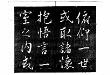 俯仰一世
或取諸懷
抱悟言一
室之內或